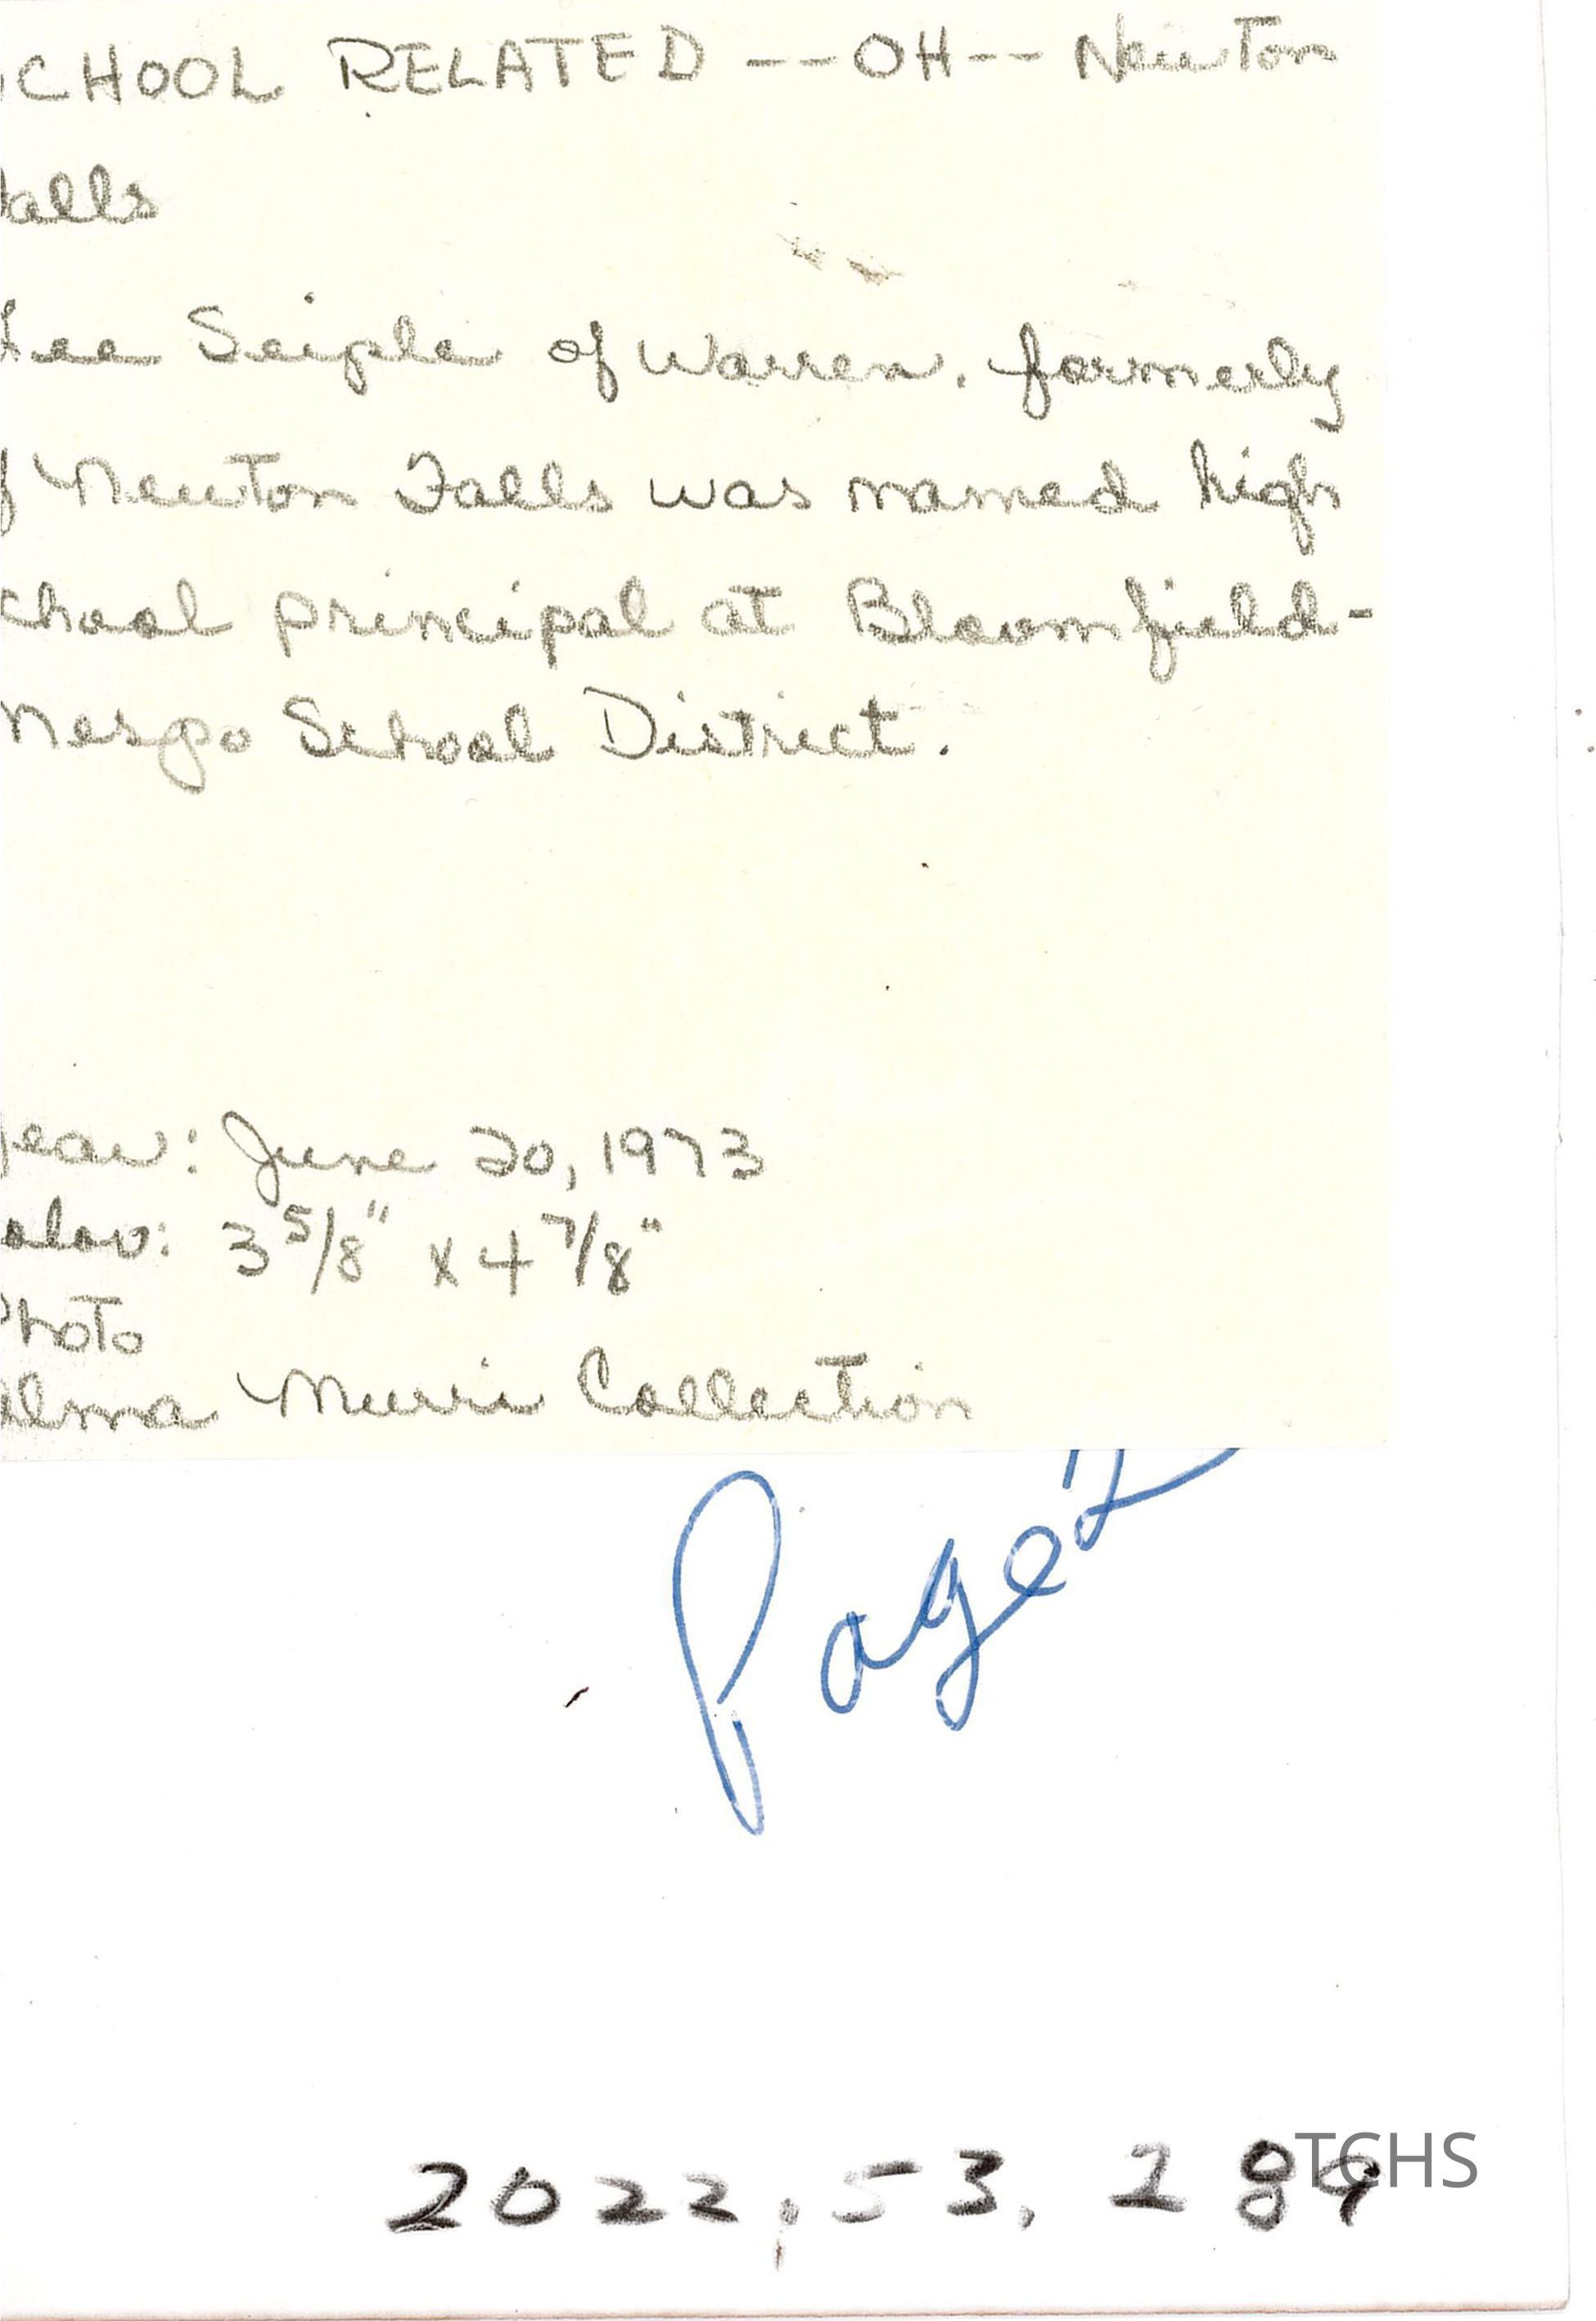 CHOOL RELATED -- OH -- Newton
alls
Lee Seiple of Warren, formerly
f Newton Falls was named high
chool principal at Bloomfield-
Mespo School District.
ear: June 20, 1973
olor: 3 5/8" x 4 7/8"
Photo
alma Murri Collection
Page 2
2022.53.289
TCHS